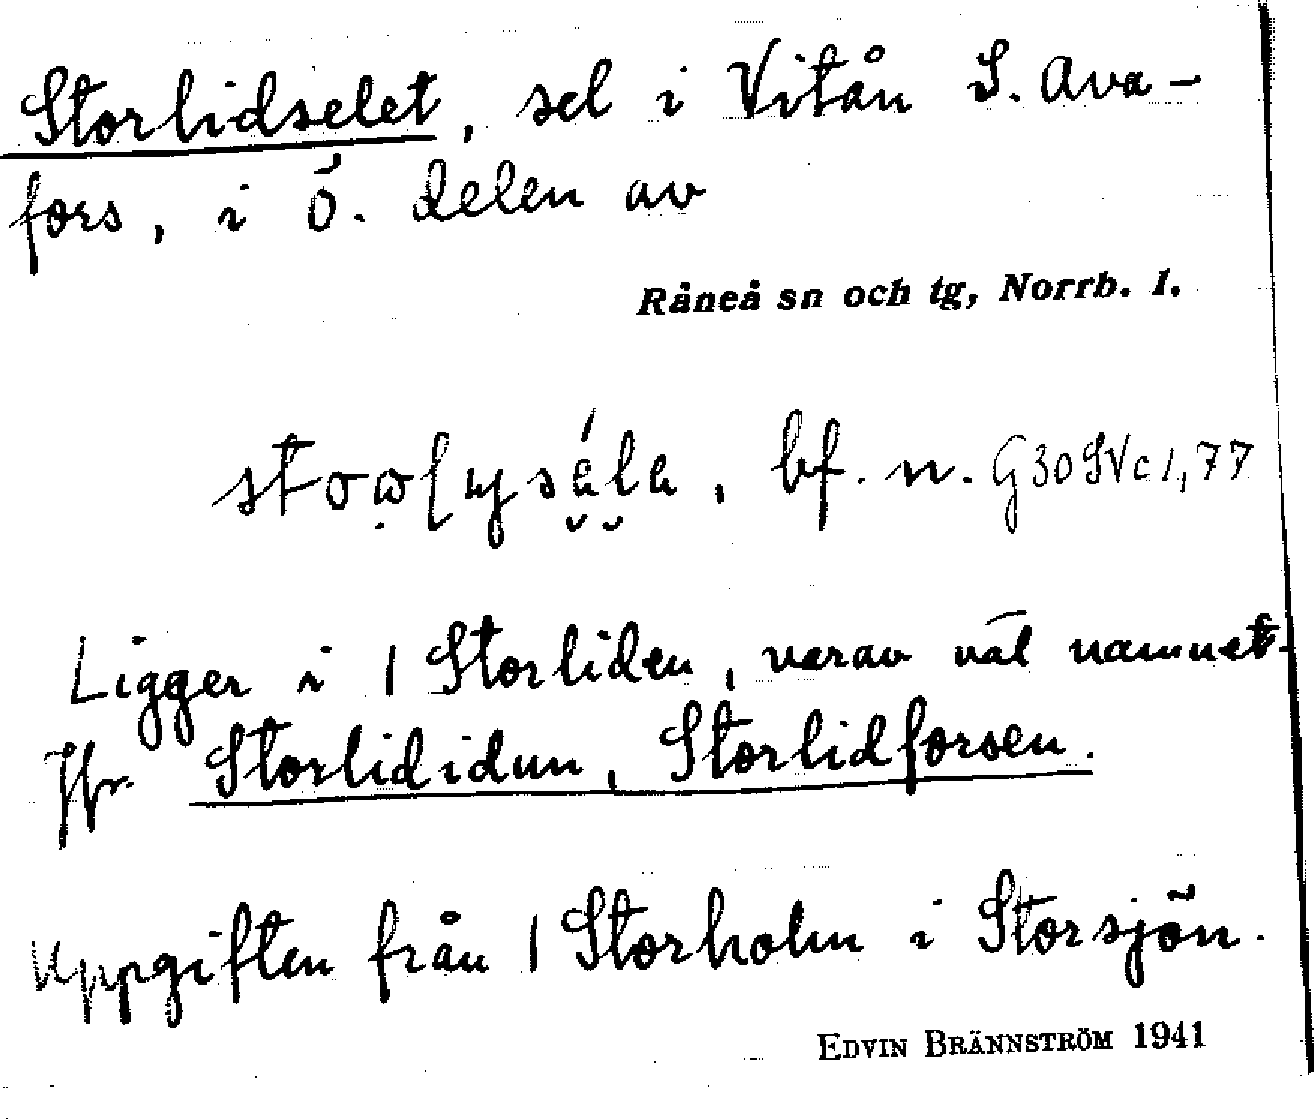 Storlidselet, sel i Vitån S. Ava-
fors, i ö. delen av
Råneå sn och tg, Norrb. l.
bf. n. G30 SVc 1,77
Ligger i 1 Storliden, varav väl namnet.
Jfr Storlididun, Storlidforsen.
Uppgiften från 1 Storholm i Storsjön.
EDVIN BRÄNNSTRÖM 1941